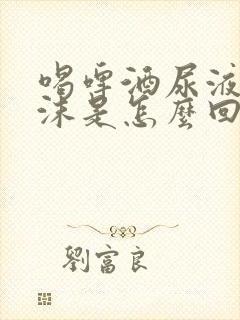 喝啤酒尿液
沫是怎麼回
劉富良